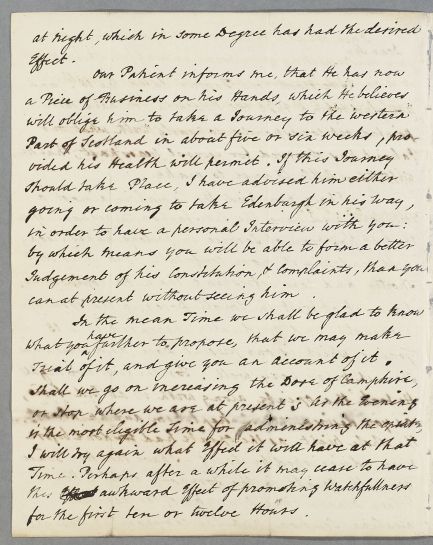 at Night, which in some Degree has had the desired
Effect.
Our Patient informs me, that He has now
a Piece of Business on his Hands, which He believes
will oblige him to take a Journey to the western
Part of Scotland in about five or six weeks, pro-
vided his Health will permit. If this Journey
should take Place, I have advised him either
going or coming to take Edenburgh in his way,
in order to have a personal Interview with you:
by which means you will be able to form a better
Judgement of his Constitution, & Complaints, than you
can at present without seeing him.
In the mean Time we shall be glad to know
what you have further to propose, that we may make
Trial of it, and give you an account of it.
Shall we go on increasing the Dose of Camphire,
or stop where we are at present? As the Evening
is the most eligible Time for administring the
I will try again what Effect it will have at that
Time. Perhaps after a while it may cease to have
this awkward Effect of promoting Watchfullness
for the first ten or twelve Hours.